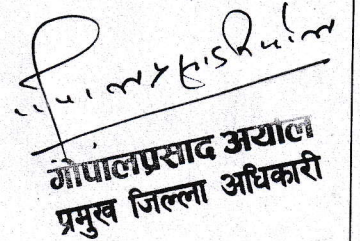 गोपालप्रसाद अर्याल
प्रमुख जिल्ला अधिकारी